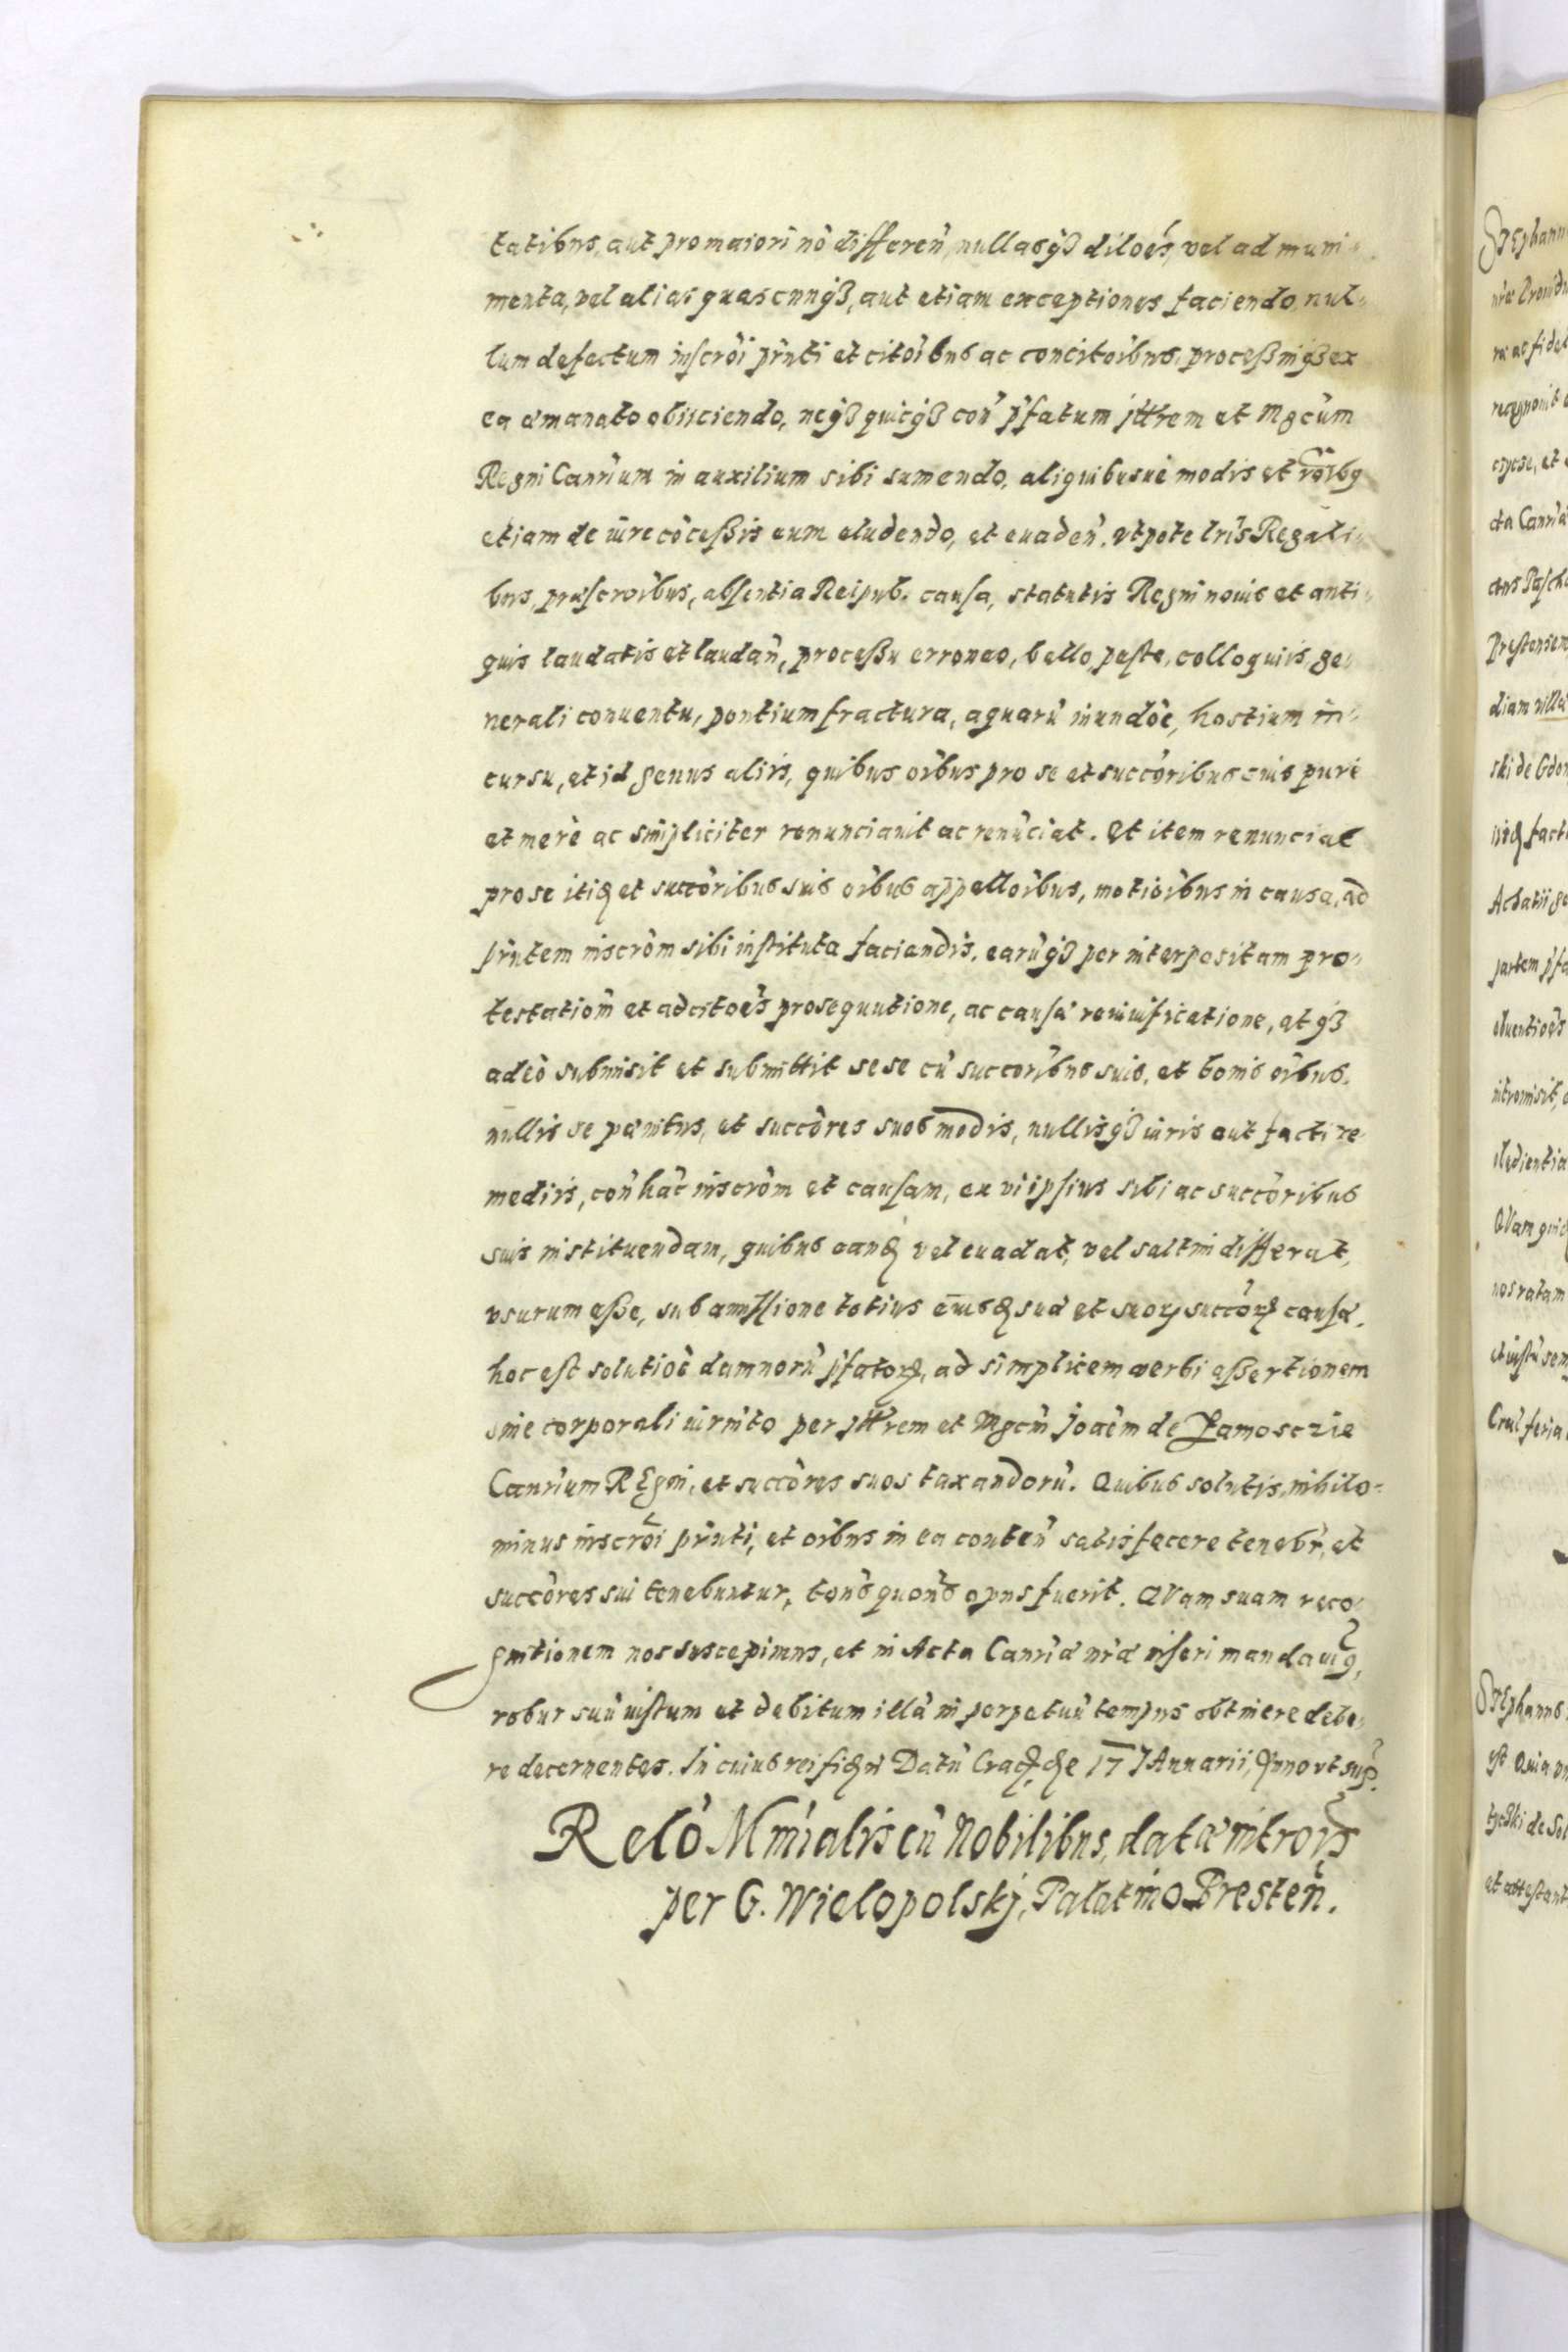 tatibus, aut pro maiori nō differen̄, nullasq3 diloēs, vel ad muni-
menta, vel alias quascunq3, aut etiam exceptiones faciendo, nul-
lum defectum inscrōi prn̄ti et citōibus ac concitōibus, processuiq3 ex
ea emanato obijciendo, neq3 quicq3 con̄ pfatum Jllrem et Mgcūm
Regni Canrium in auxilium sibi sumendo, aliquibusuè modis et rōibq
etiam de iure cōcessis eum eludendo, et euaden̄. vtpote lrīs Regali-
bus, præscroībus, absentia Reipub. causa, statutis Regni nouis et anti-
quis laudatis et laudan̄, processu erroneo, bello, peste, colloquijs, ge-
nerali conuentu, pontium fractura, aquarū inundōe, hostium in-
cursu, et id genus aliis, quibus oībus pro se et succōribus suis purè
et merè ac simpliciter renunciauit ac renūciat. Et item renunciat
pro se itiq et succōribus suis oībus appellōibus, motiōibus in causa, ad
prn̄tem inscrōm sibi instituta faciendis, earūq3 per interpositam pro-
testatiom̄ et adcitoēs prosequutione, ac causæ reuiuificatione, atq3
adeò submisit et submittit sese cū succorībus suis, et bonis oībus,
nullis se pænitus, et succōres suos modis, nullisq3 iuris aut facti re-
mediis, con̄ hāc inscrōm et causam, ex vi ipsius sibi ac succōribus
suis instituendam, quibus eandē vel euadat, vel saltim differat,
vsurum esse, sub amissione totius suæ et suor succōr causæ,
hoc est solutiōe damnorū pfator, ad simplicem verbi assertionem
sine corporali iurn̄to per Jllrem et Mgcm̄ Joaēm de Zamosczie
Canrium REgni, et succōres suos taxandorū. Quibus solutis, nihilo-
minus inscrōi prn̄ti, et oībus in ea conten̄ satisfacere tenebr̄, et
succōres sui tenebuntur, tons̄ quons̄ opus fuerit. QVam suam reco-
gnitionem nos suscepimus, et in Acta Canriæ nrǣ inseri mandauiq,
robur suū iustum et debitum illā in perpetuū tempus obtinere debe-
re decernentes. In cuius rei fidem Datū Crac die 17 JAnuarii, Anno vt sup̄.
Relō Mīnialis cū Nobilibus, datæ intrōis
per G. Wielopolskj, Palatino Bresten̄.